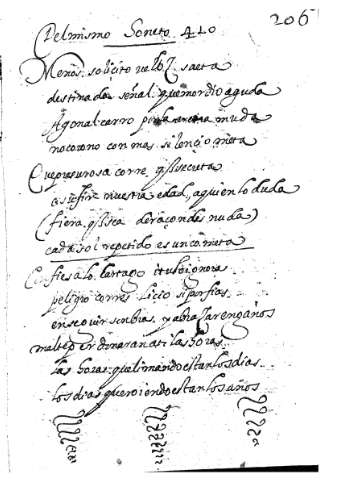 206
Del mismo Soneto
Menos solicito veloz saeta
destinada señal, que mordio aguda
Agonal carro por la arena muda
no corono con mas silencio meta
Que presurosa corre q̃ secreta
a su fin nuestra edad, a quien lo duda
(fiera q̃ sea de raçon desnuda)
cada sol repetido es un cometa
Confiesalo Cartago i tu lo ignoras
peligro corres Licio si porfias
en seguir sombras y abraçar engaños
mal te perdonaran a ti las horas
las horas que limando estan los dias
los dias que roiendo estan los años